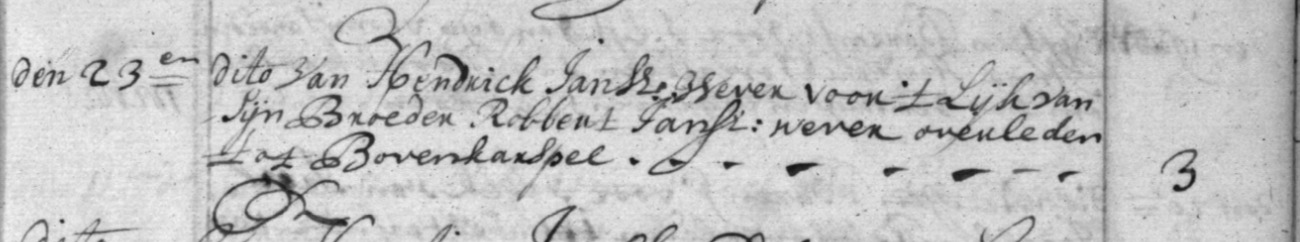 den 23en dito van Hendrick Jansz: Wever voor 't Lijk van
Sijn Broeder Robbert Jansz: wever overleden
tot Bovenkarspel . - - - - - - - 3
dito